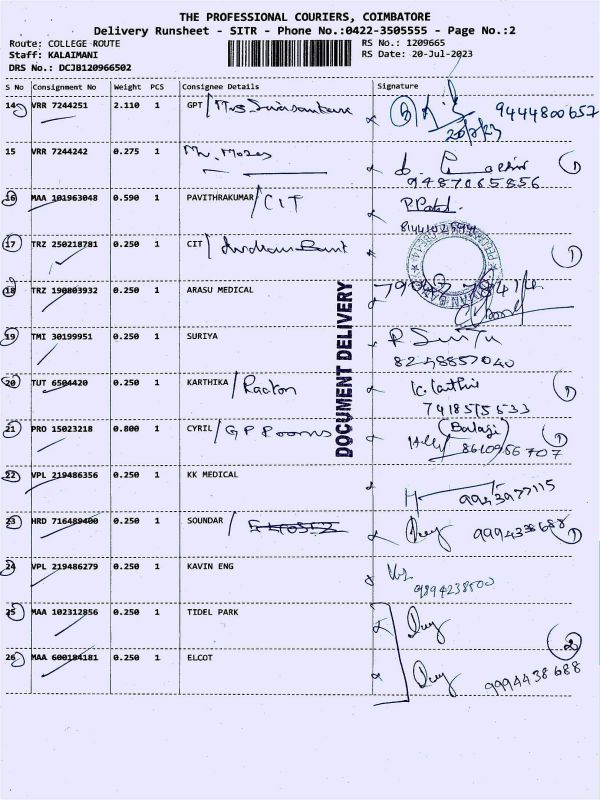 THE PROFESSIONAL COURIERS, COIMBATORE
Delivery Runsheet - SITR - Phone No.:0422-3505555 - Page No.:2
Route: COLLEGE ROUTE
Staff: KALAIMANI
DRS No.: DCJB120966502
RS No.: 1209665
RS Date: 20-Jul-2023
S No Consignment No Weight PCS Consignee Details Signature
14 VRR 7244251 2.110 1 GPT /
9444800657
15 VRR 7244242 0.275 1 Mr. Moses
9487065856
16 MAA 101963048 0.590 1 PAVITHRAKUMAR / CIT
17 TRZ 250218781 0.250 1 CIT / Indian Bank
18 TRZ 190803932 0.250 1 ARASU MEDICAL
19 TMI 30199951 0.250 1 SURIYA
8248857040
20 TUT 6504420 0.250 1 KARTHIKA /
21 PRO 15023218 0.800 1 CYRIL / GP Rooms (Balaji)
8610956707
22 VPL 219486356 0.250 1 KK MEDICAL
9943977115
23 HRD 716489400 0.250 1 SOUNDAR /
9994438688
24 VPL 219486279 0.250 1 KAVIN ENG
25 MAA 102312856 0.250 1 TIDEL PARK
26 MAA 600184181 0.250 1 ELCOT
9994438688
DOCUMENT DELIVERY